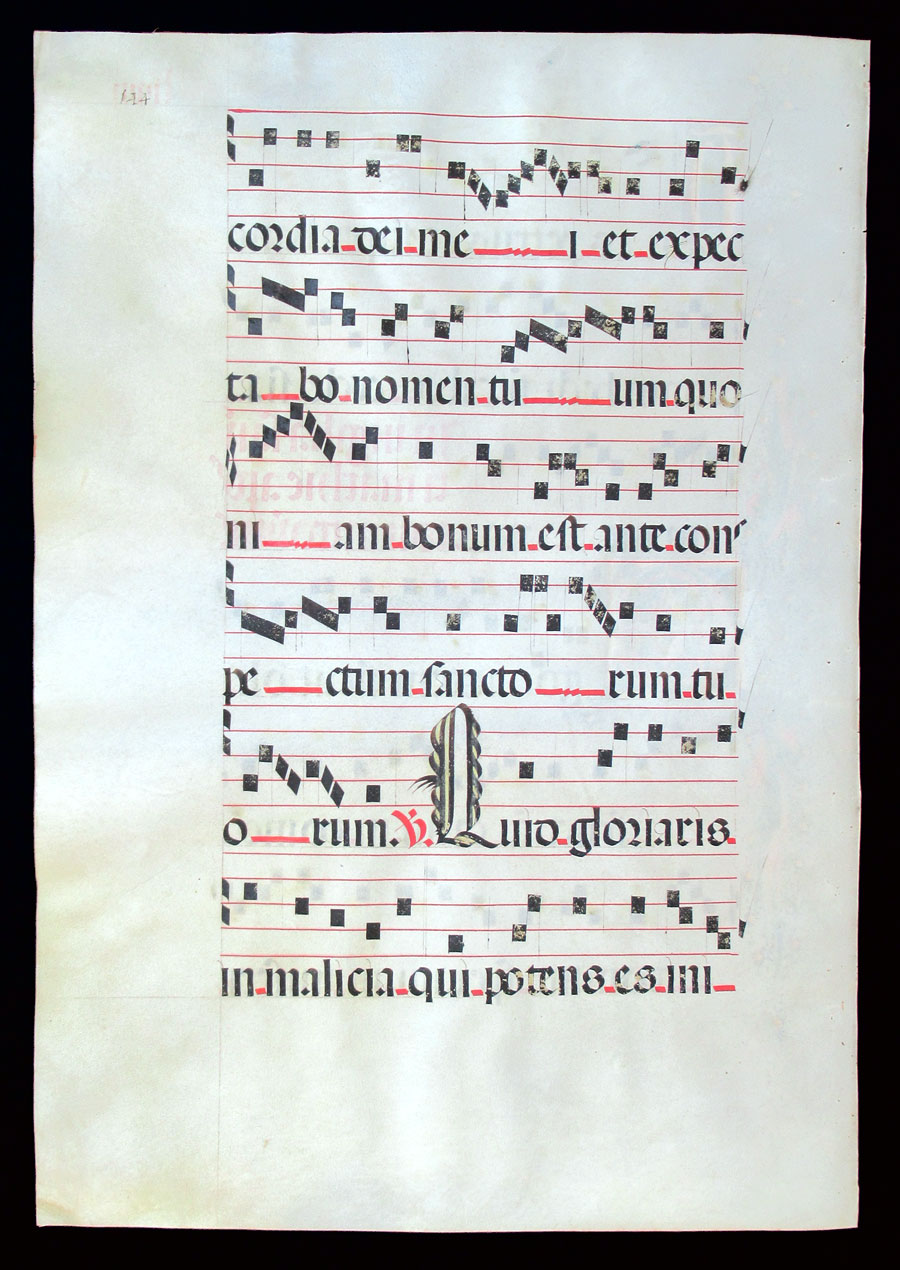 cordia dei me i et expec
ta bo nomen tu um quo
ni am bonum est ante cons
pe ctum sancto rum tu
o rum. ℣. Quid gloriaris
in malicia qui potens es ini